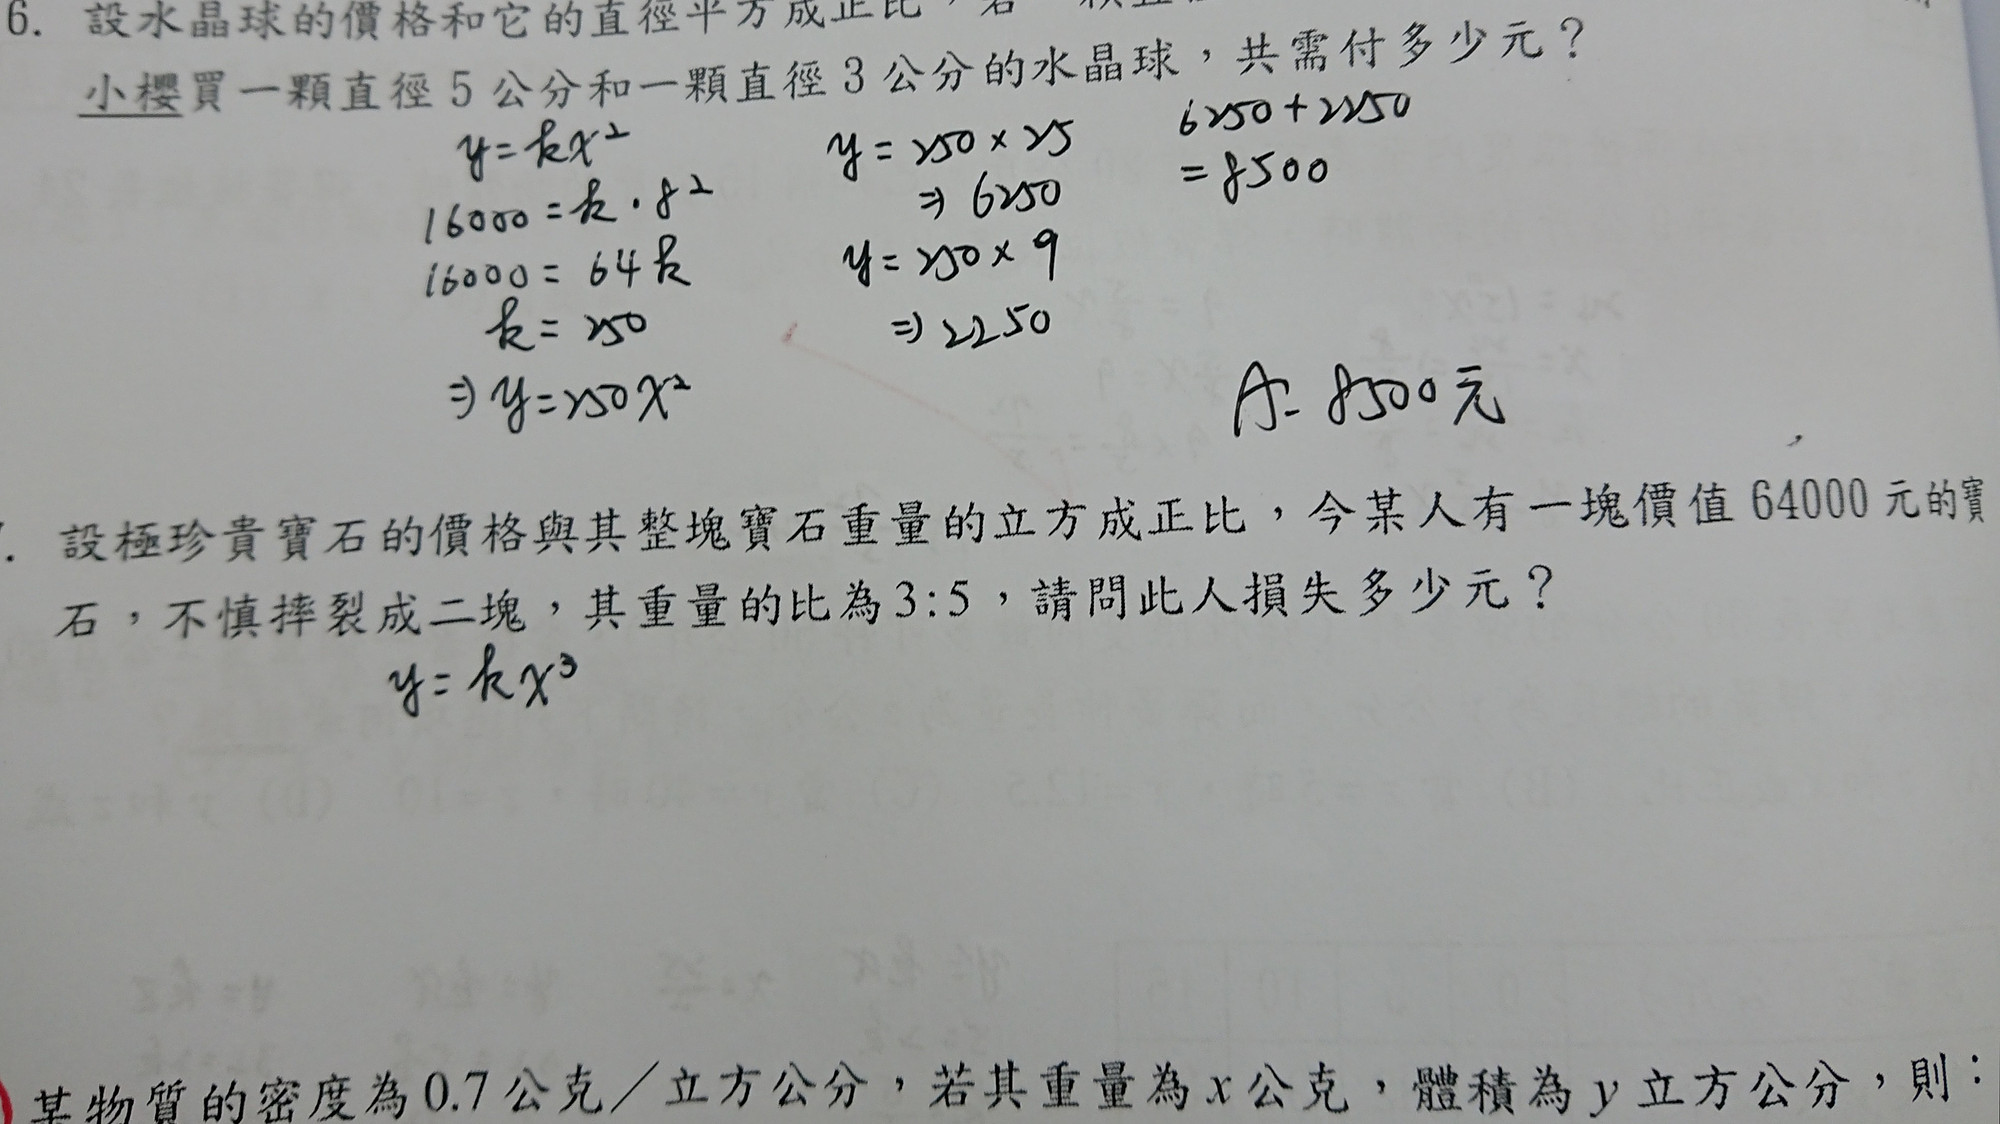 6. 設水晶球的價格和它的直徑平方成正比，若一顆直
小櫻買一顆直徑 5 公分和一顆直徑 3 公分的水晶球，共需付多少元？
y = kx²
16000 = k · 8²
16000 = 64k
k = 250
⇒ y = 250x²
y = 250 × 25
⇒ 6250
y = 250 × 9
⇒ 2250
6250 + 2250
= 8500
A: 8500 元
. 設極珍貴寶石的價格與其整塊寶石重量的立方成正比，今某人有一塊價值 64000 元的寶
石，不慎摔裂成二塊，其重量的比為 3:5，請問此人損失多少元？
y = kx³
某物質的密度為 0.7 公克／立方公分，若其重量為 x 公克，體積為 y 立方公分，則：